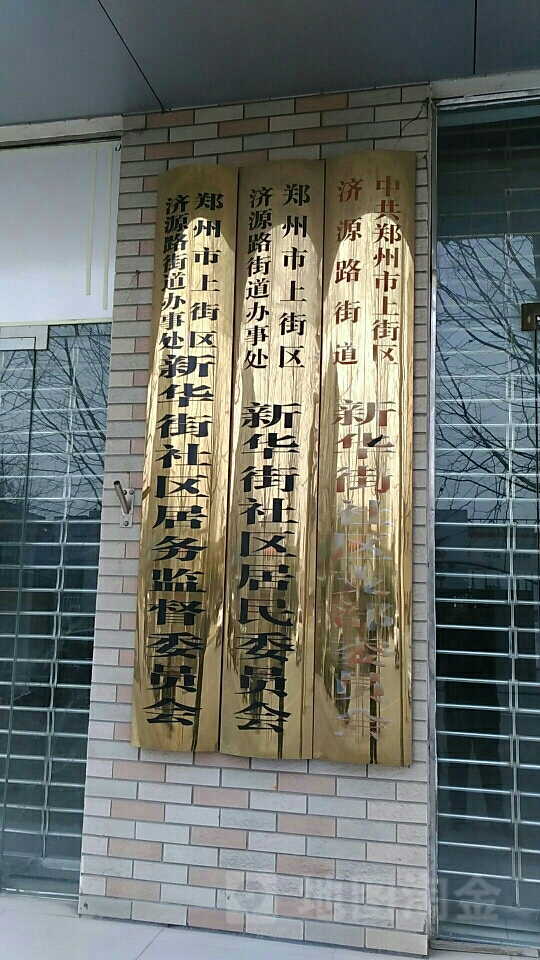 中共郑州市上街区
济源路街道
新华街社区支部委员会
郑州市上街区
济源路街道办事处
新华街社区居民委员会
郑州市上街区
济源路街道办事处
新华街社区居务监督委员会